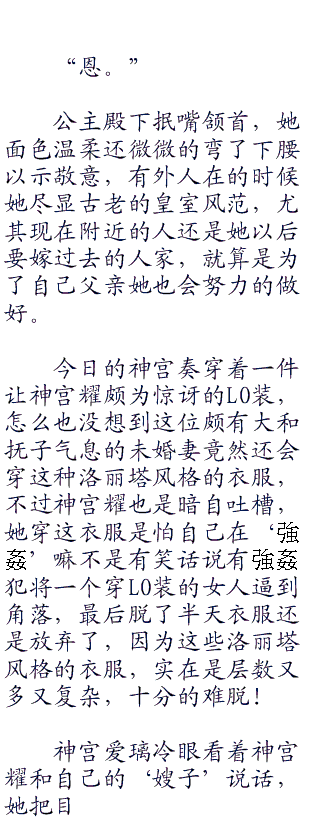 “恩。”
公主殿下抿嘴颔首，她
面色温柔还微微的弯了下腰
以示敬意，有外人在的时候
她尽显古老的皇室风范，尤
其现在附近的人还是她以后
要嫁过去的人家，就算是为
了自己父亲她也会努力的做
好。
今日的神宫奏穿着一件
让神宫耀颇为惊讶的LO装，
怎么也没想到这位颇有大和
抚子气息的未婚妻竟然还会
穿这种洛丽塔风格的衣服，
不过神宫耀也是暗自吐槽，
她穿这衣服是怕自己在‘強
姦’嘛不是有笑话说有強姦
犯将一个穿LO装的女人逼到
角落，最后脱了半天衣服还
是放弃了，因为这些洛丽塔
风格的衣服，实在是层数又
多又复杂，十分的难脱！
神宫爱璃冷眼看着神宫
耀和自己的‘嫂子’说话，
她把目